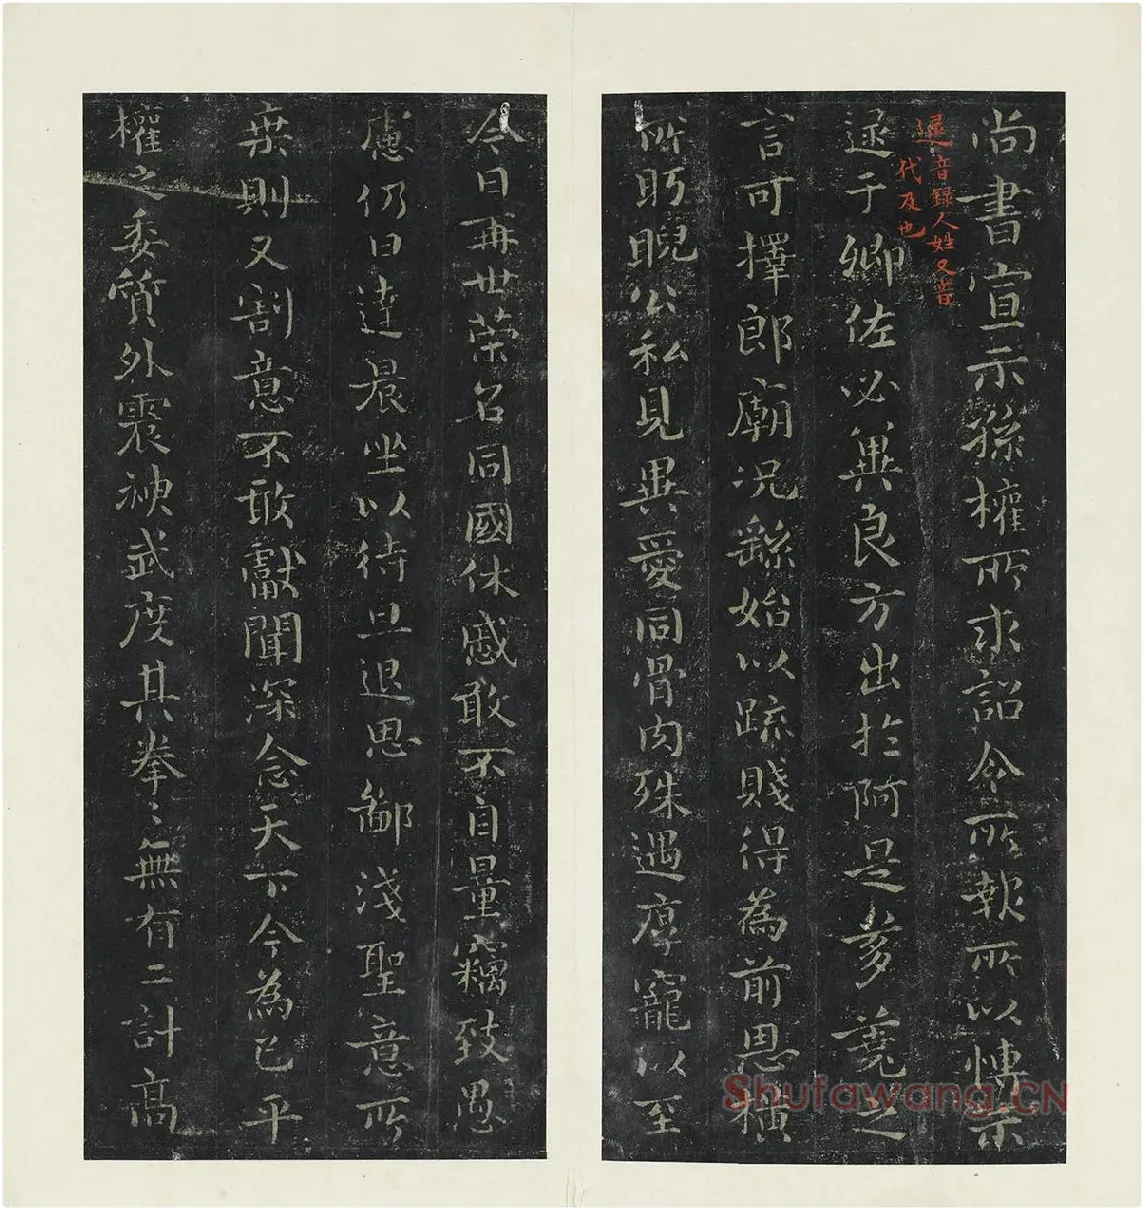 尚書宣示孫權所求詔令所報所以博示
逯音錄人姓又音
代及也
逯于卿佐必冀良方出於阿是芻蕘之
言可擇郎廟況繇始以疏賤得為前恩橫
所眄睨公私見異愛同骨肉殊遇厚寵以至
今日再世榮名同國休慼敢不自量竊致愚
慮仍日達晨坐以待旦退思鄙淺聖意所
棄則又割意不敢獻聞深念天下今為已平
權之委質外震神武度其拳〻無有二計高
Shufawang.CN